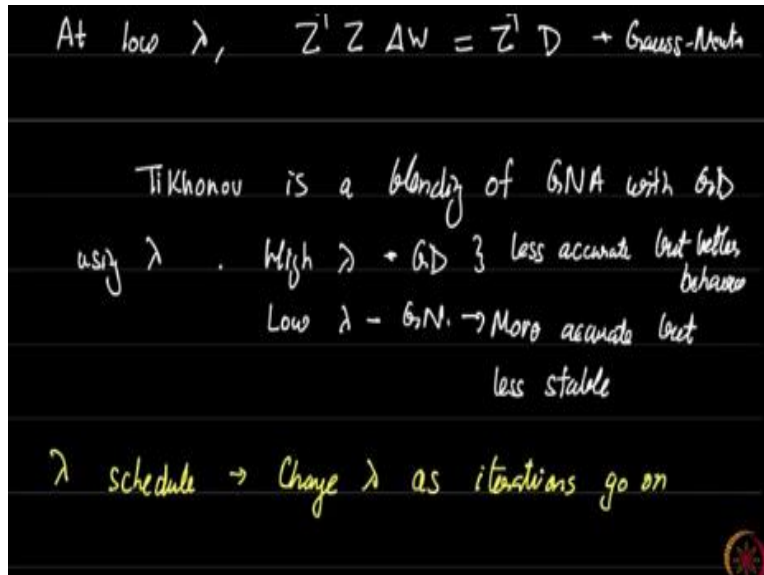 At low λ, Z⊤ Z ΔW = Z⊤ D → Gauss-Newton
Tikhonov is a blending of GNA with GD
using λ . High λ → GD } less accurate but better
behaved
Low λ - GN. → More accurate but
less stable
λ schedule → Change λ as iterations go on